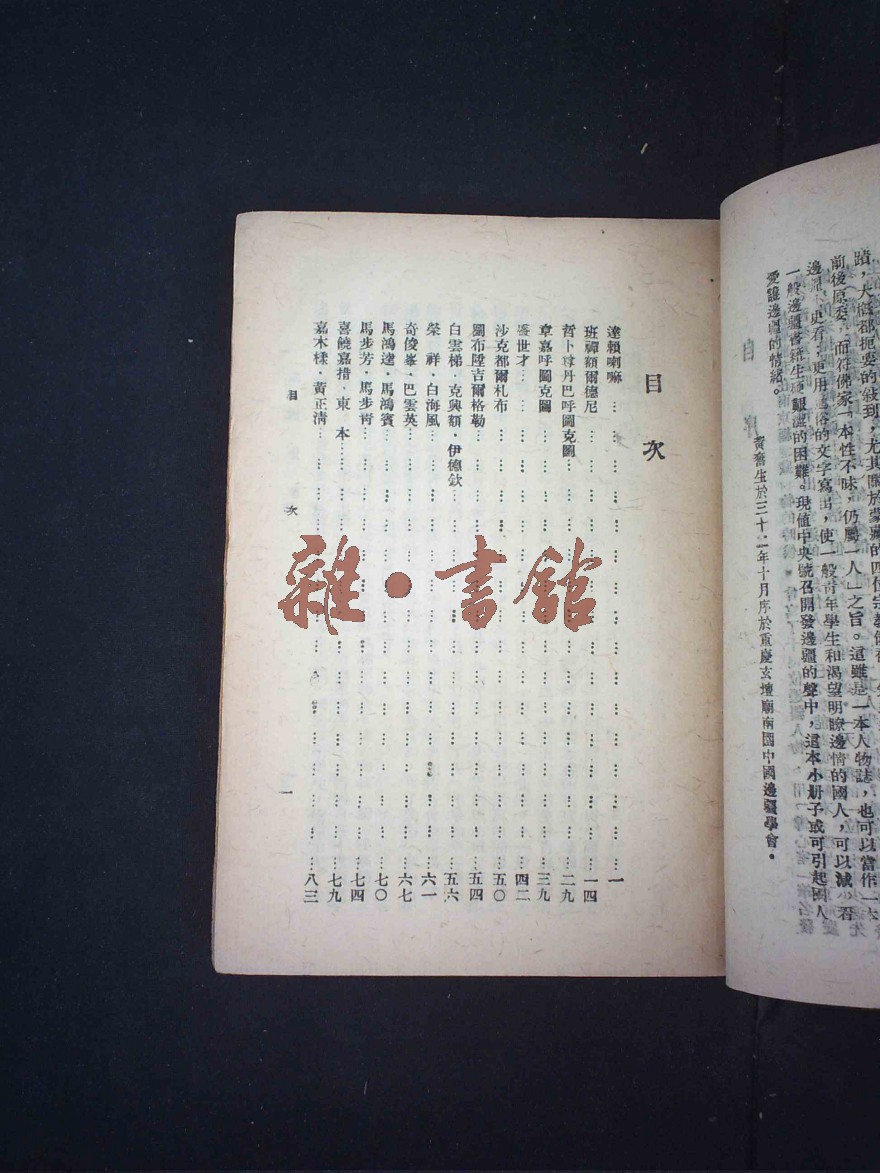 蹟，大槪都扼要的敍到，尤其關於蒙藏的四位宗教
前後原委，而符佛家「本性不昧，仍屬一人」之旨。這雖是一本人物誌，也可以當作一
邊疆 史看，更用通俗的文字寫出，使一般青年學生和渴望明瞭邊情的國人，可以減 看
一般邊疆書籍生硬艱澀的困難。現値中央號召開發邊疆的聲中，這本小册子或可引起國人
愛護邊疆的情緒。
黃奮生於三十二年十月序於重慶玄壇廟南園中國邊疆學會。
目次
達賴喇嘛……一
班禪額爾德尼……一四
哲卜尊丹巴呼圖克圖……二九
章嘉呼圖克圖……三九
盛世才……四二
沙克都爾札布……五〇
圖布陞吉爾格勒……五四
白雲梯·克興額·伊德欽……五六
榮祥·白海風……六一
奇俊峯·巴雲英……六七
馬鴻逵·馬鴻賓……七〇
馬步芳·馬步靑……七四
喜饒嘉措·東本……七九
嘉木樣·黃正淸……八三
目次
一
雜·書館